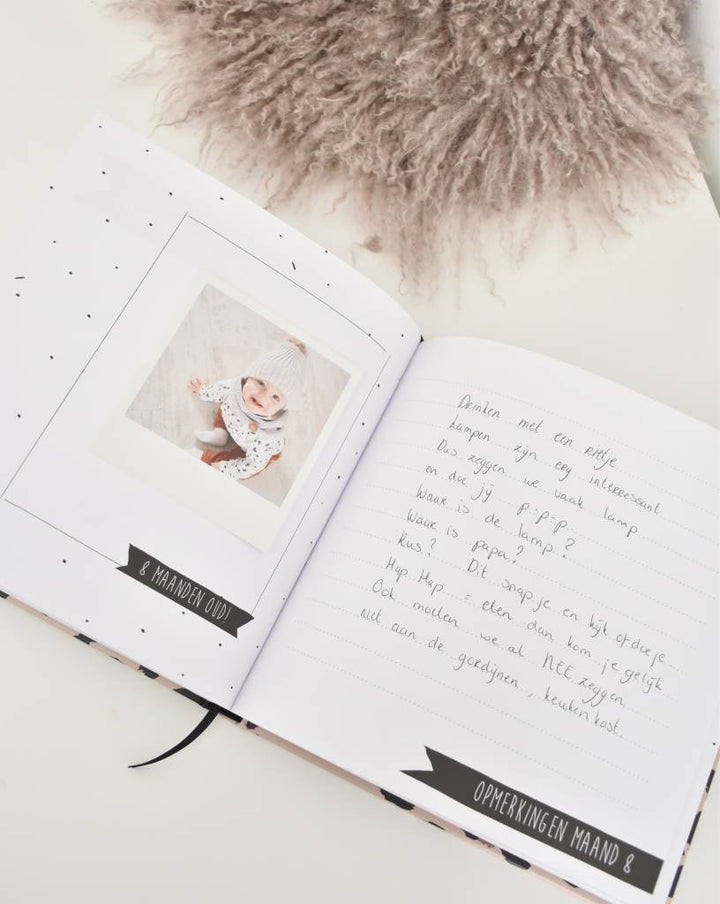 8 MAANDEN OUD!
Drinken met een rietje
Lampen zijn erg interressant
Dus zeggen we vaak lamp
en doe jij p-p-p.
Waar is de lamp?
Waar is papa?
Kus? Dit snap je en kijk of doe je
Hap Hap = eten dan kom je gelijk
Ook moeten we al NEE zeggen
niet aan de gordijnen, keukenkast.
OPMERKINGEN MAAND 8